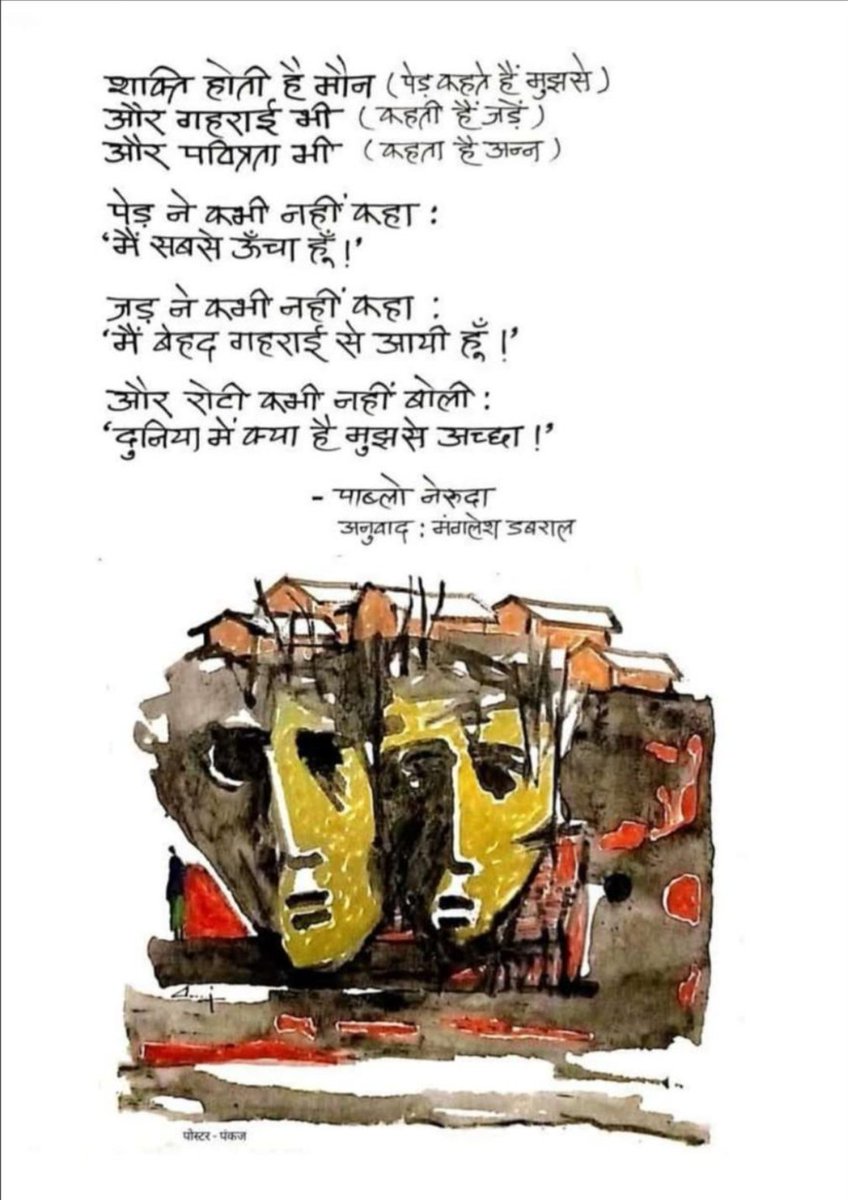 शक्ति होती है मौन (पेड़ कहते हैं मुझसे)
और गहराई भी (कहती हैं जड़ें)
और पवित्रता भी (कहता है अन्न)
पेड़ ने कभी नहीं कहा :
'मैं सबसे ऊँचा हूँ !'
जड़ ने कभी नहीं कहा :
'मैं बेहद गहराई से आयी हूँ !'
और रोटी कभी नहीं बोली :
'दुनिया में क्या है मुझसे अच्छा !'
- पाब्लो नेरुदा
अनुवाद : मंगलेश डबराल
पोस्टर - पंकज